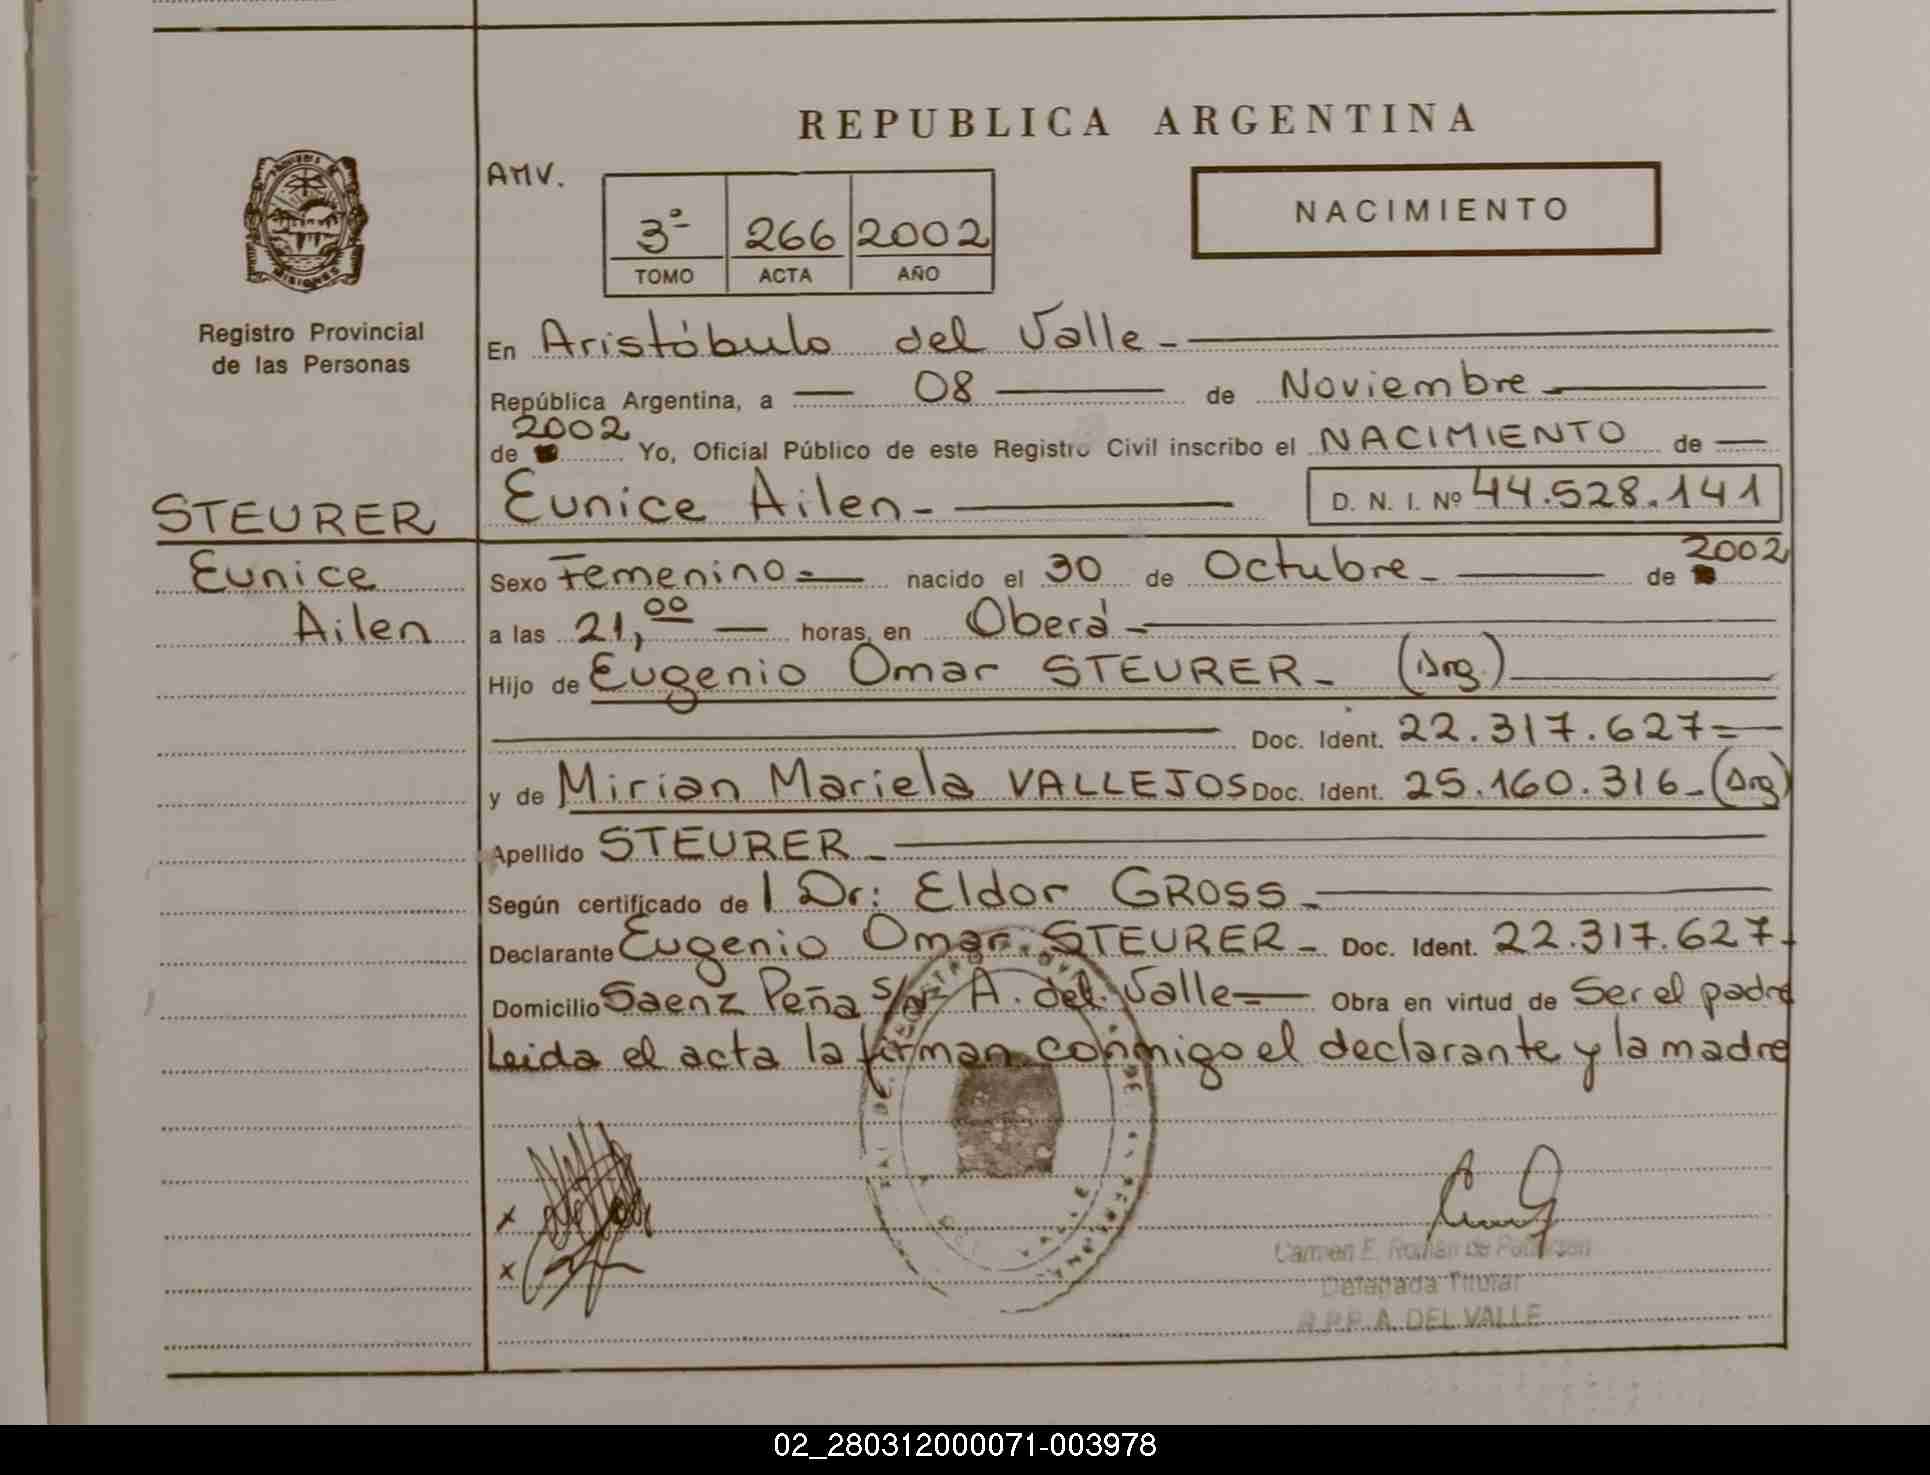 REPUBLICA ARGENTINA
AMV.
3º 266 2002
TOMO ACTA AÑO
NACIMIENTO
MISIONES
Registro Provincial
de las Personas
En Aristóbulo del Valle -
República Argentina, a 08 de Noviembre
de 2002 Yo, Oficial Público de este Registro Civil inscribo el NACIMIENTO de
STEURER
Eunice
Ailen
Eunice Ailen - D. N. I. Nº 44.528.141
Sexo Femenino = nacido el 30 de Octubre - de 2002
a las 21,00 horas, en Oberá -
Hijo de Eugenio Omar STEURER - (Arg.)
Doc. Ident. 22.317.627 =
y de Mirian Mariela VALLEJOS Doc. Ident. 25.160.316 - (Arg)
Apellido STEURER -
Según certificado de l Dr: Eldor GROSS -
Declarante Eugenio Omar STEURER - Doc. Ident. 22.317.627 -
Domicilio Saenz Peña s/n A. del Valle = Obra en virtud de Ser el padre
Leida el acta la firman conmigo el declarante y la madre
x
x
Carmen E. Román de
Delegada Titular
R.P.P. A. DEL VALLE
02_280312000071-003978